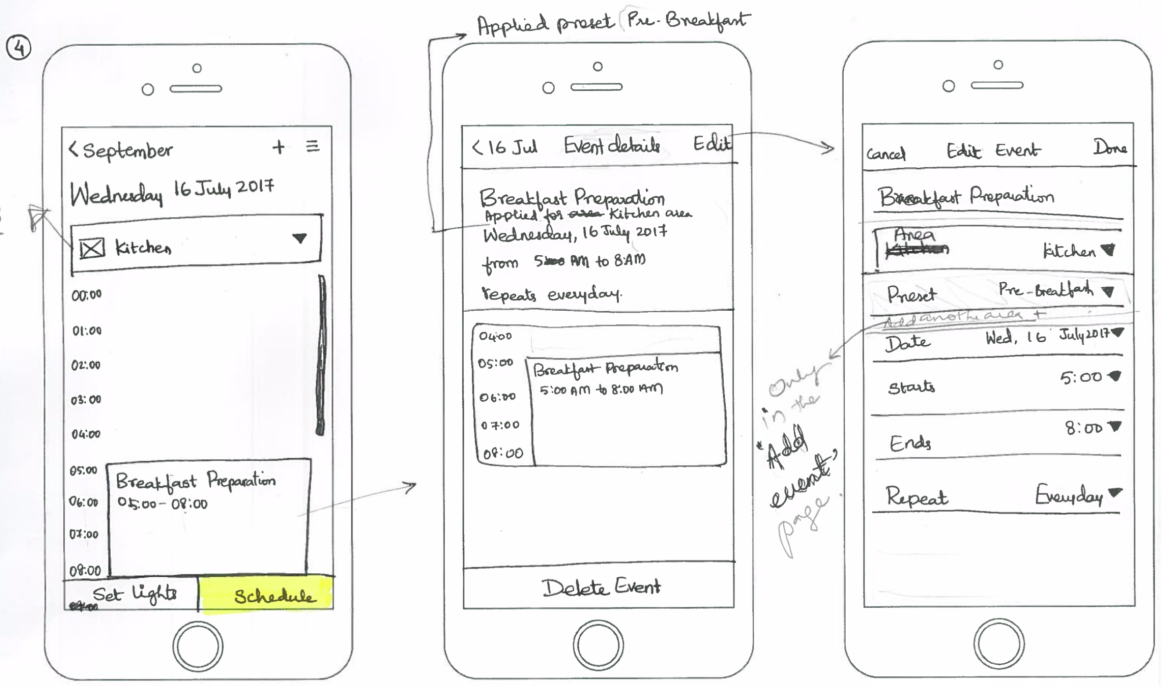 4
Applied preset Pre-Breakfast
< September + ≡
Wednesday 16 July 2017
Kitchen
00:00
01:00
02:00
03:00
04:00
05:00
06:00
07:00
08:00
Breakfast Preparation
05:00 - 08:00
Set Lights
Schedule
< 16 Jul Event details Edit
Breakfast Preparation
Applied for area Kitchen area
Wednesday, 16 July 2017
from 5 AM to 8 AM
repeats everyday.
04:00
05:00
06:00
07:00
08:00
Breakfast Preparation
5:00 AM to 8:00 AM
Delete Event
Cancel Edit Event Done
Breakfast Preparation
Area
Kitchen
Kitchen
Preset Pre-Breakfast
Add another area +
Date Wed, 16 July 2017
Starts 5:00
Ends 8:00
Repeat Everyday
Only
in the
"Add
event"
page.